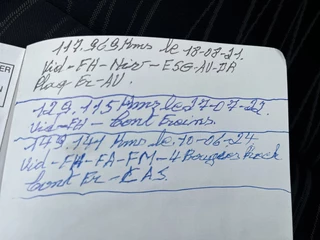 117.969 Kms le 18-07-21.
Vid-FH-Noir-ESG-AV-DA
Plaq Er-AV.
129.115 Kms le 27-07-22.
Vid-FH-Cont Freins.
149.141 Kms le 10-06-24
Vid-FH-FA-FM-4 Bougies
Cont Er-CAS.